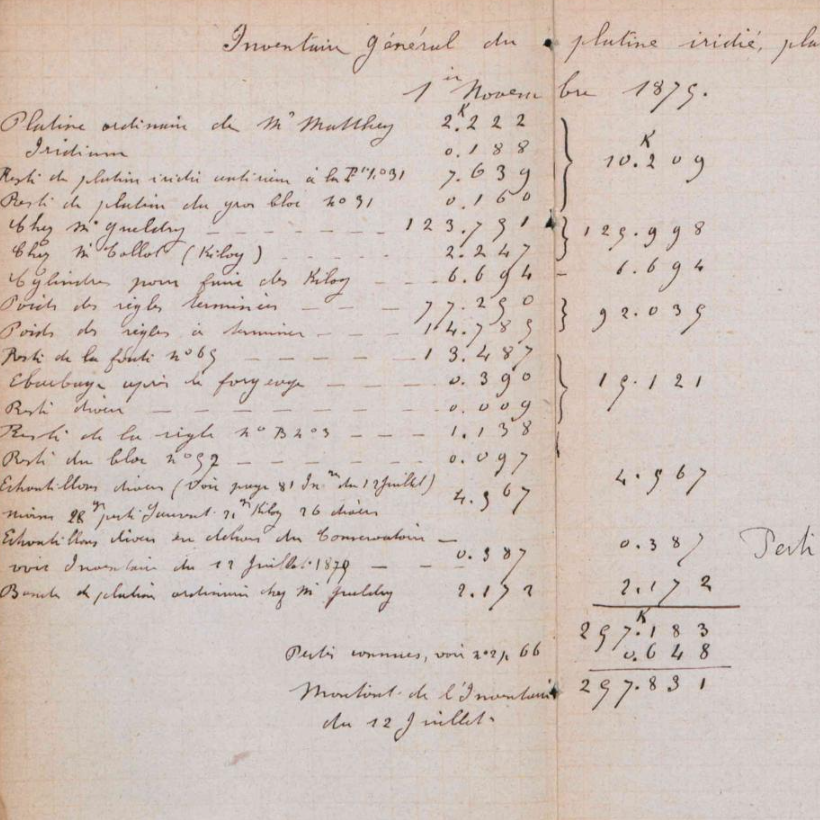 Inventaire général du platine iridié, pla
1er Novembre 1875.
Platine ordinaire de Mr Matthey 2.K222
Iridium 0.188 10.K209
Reste de platine iridié antérieur à la no 31 7.639
Reste de platine du gros bloc no 31 0.160
Chez Mr Gueldry – – – – – – 123.751 125.998
Chez Mr Collot (Kilog) – – – – 2.247
Cylindres pour faire des Kilog – – – 6.694 – 6.694
Poids des règles terminées – – – 77.250 92.035
Poids des règles à terminer – – – 14.785
Reste de la fonte no 65 – – – – – 13.487
Ebarbage après le forgeage – – – – 0.390 15.121
Reste divers – – – – – – – 0.009
Reste de la règle no B no 3 – – – 1.138
Reste du bloc no 52 – – – – – 0.097
Echantillons divers (voir page 81 Inre du 12 Juillet) 4.567 4.567
moins 28 gr perte 21 gr Kilog 26 divers
Echantillons divers en dehors du Conservatoire –
voir Inventaire du 12 Juillet 1875 – – – 0.387 0.387 Perte
Bande de platine ordinaire chez Mr Gueldry 2.172 2.172
257.K183
Pertes connues, voir no 2 p. 66 0.648
Montant de l'Inventaire 257.831
du 12 Juillet.